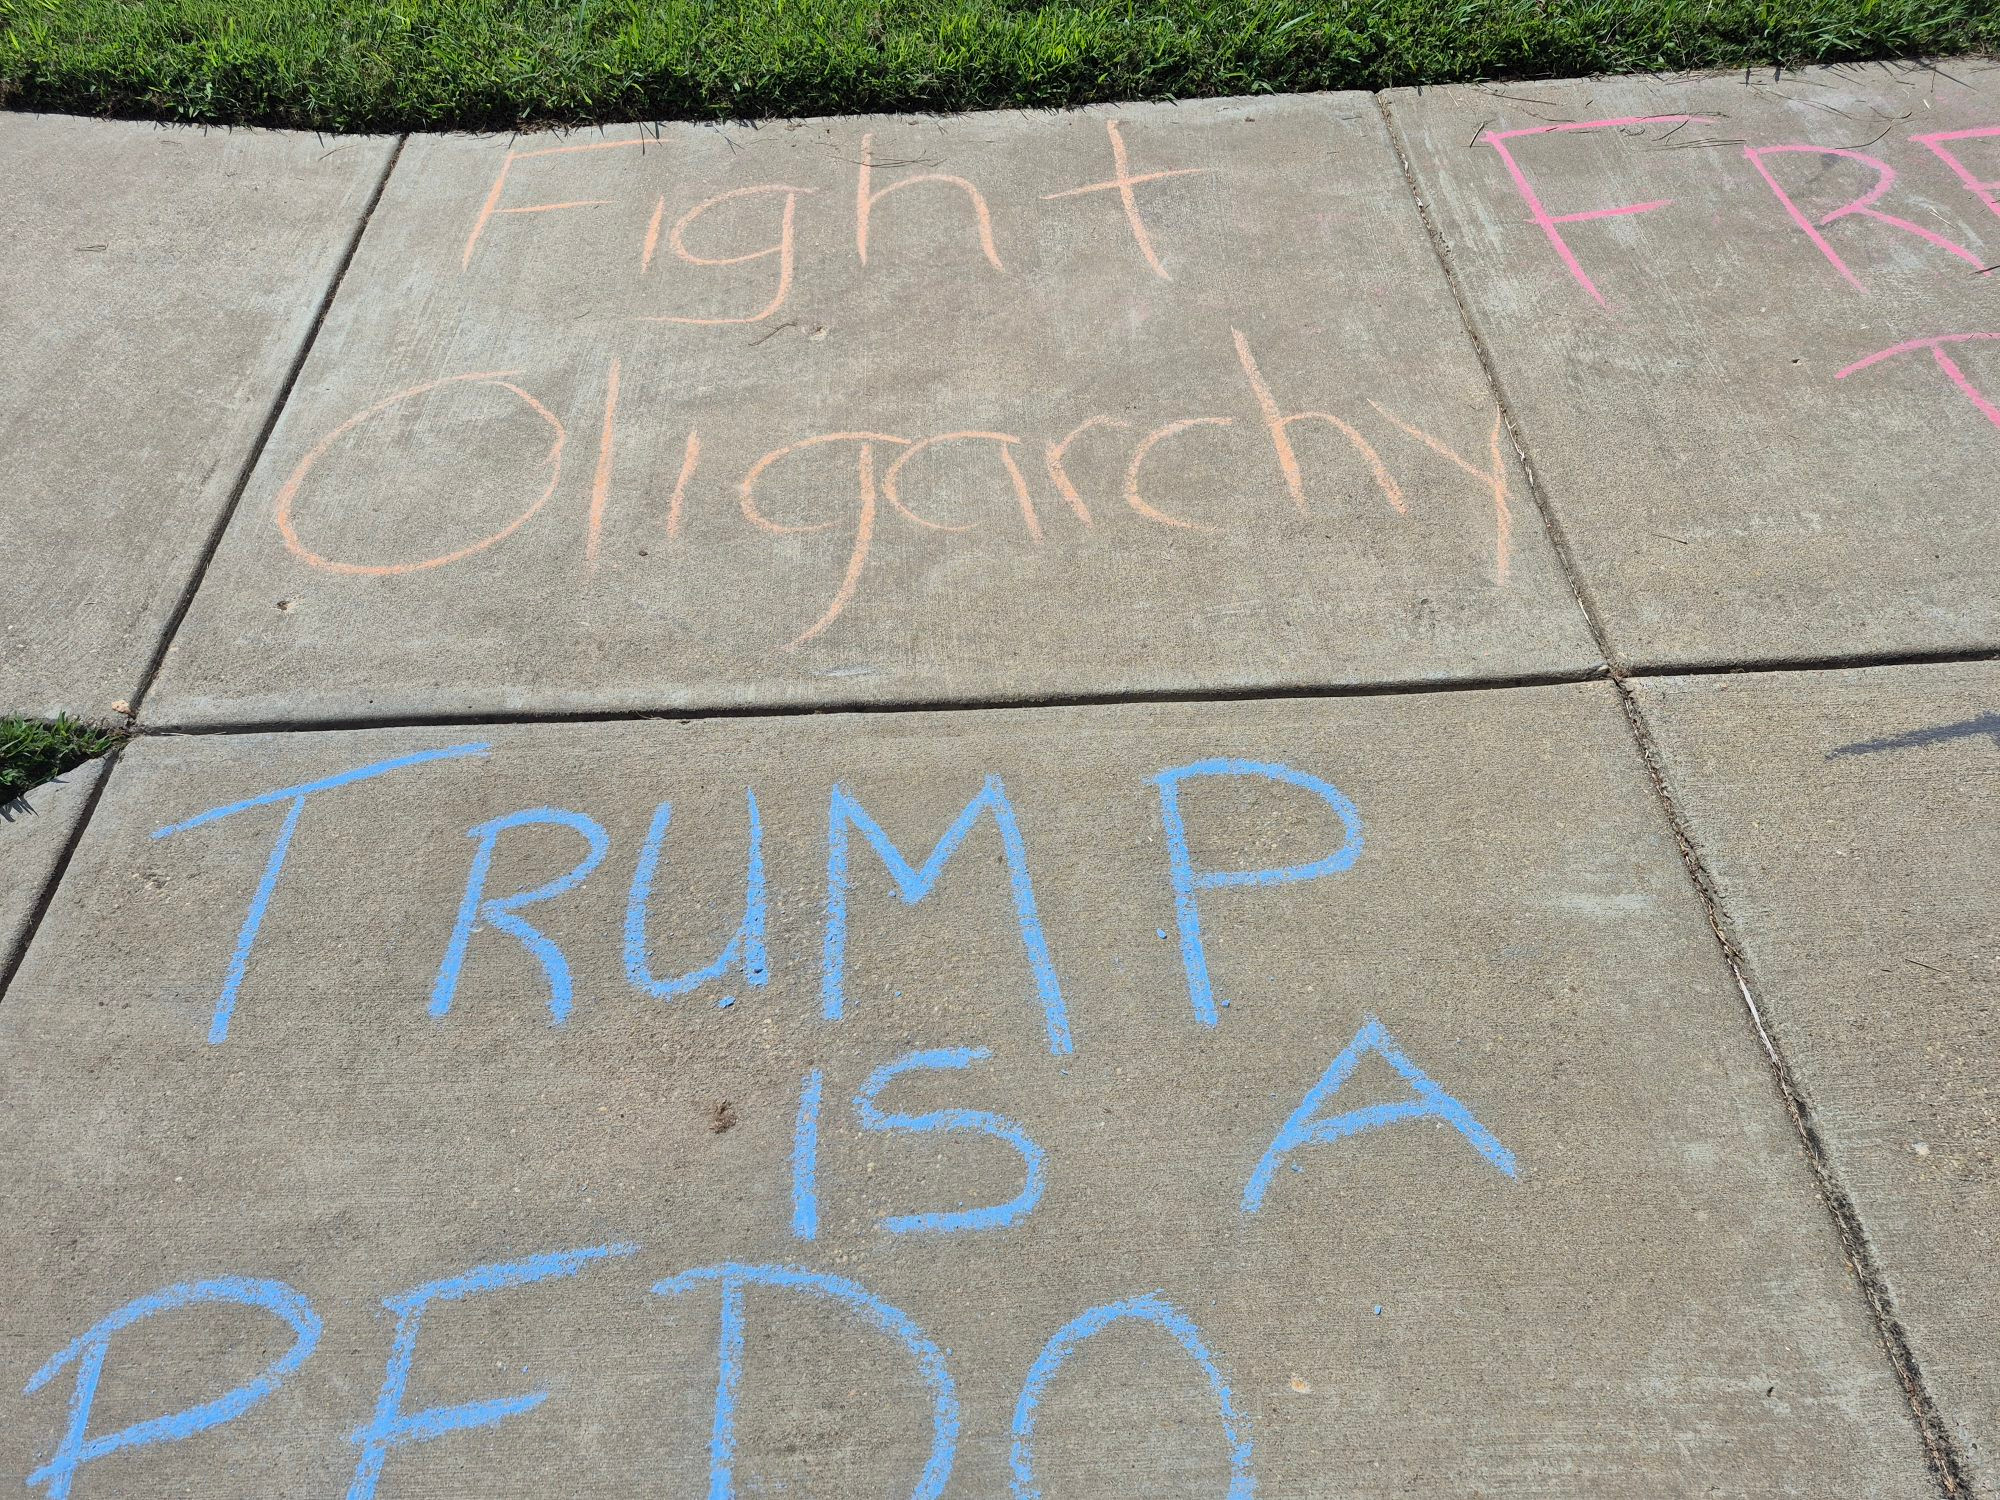 Fight
Oligarchy
TRUMP
IS A
PEDO